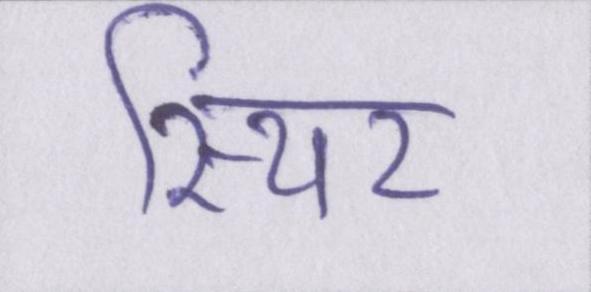 स्थिर